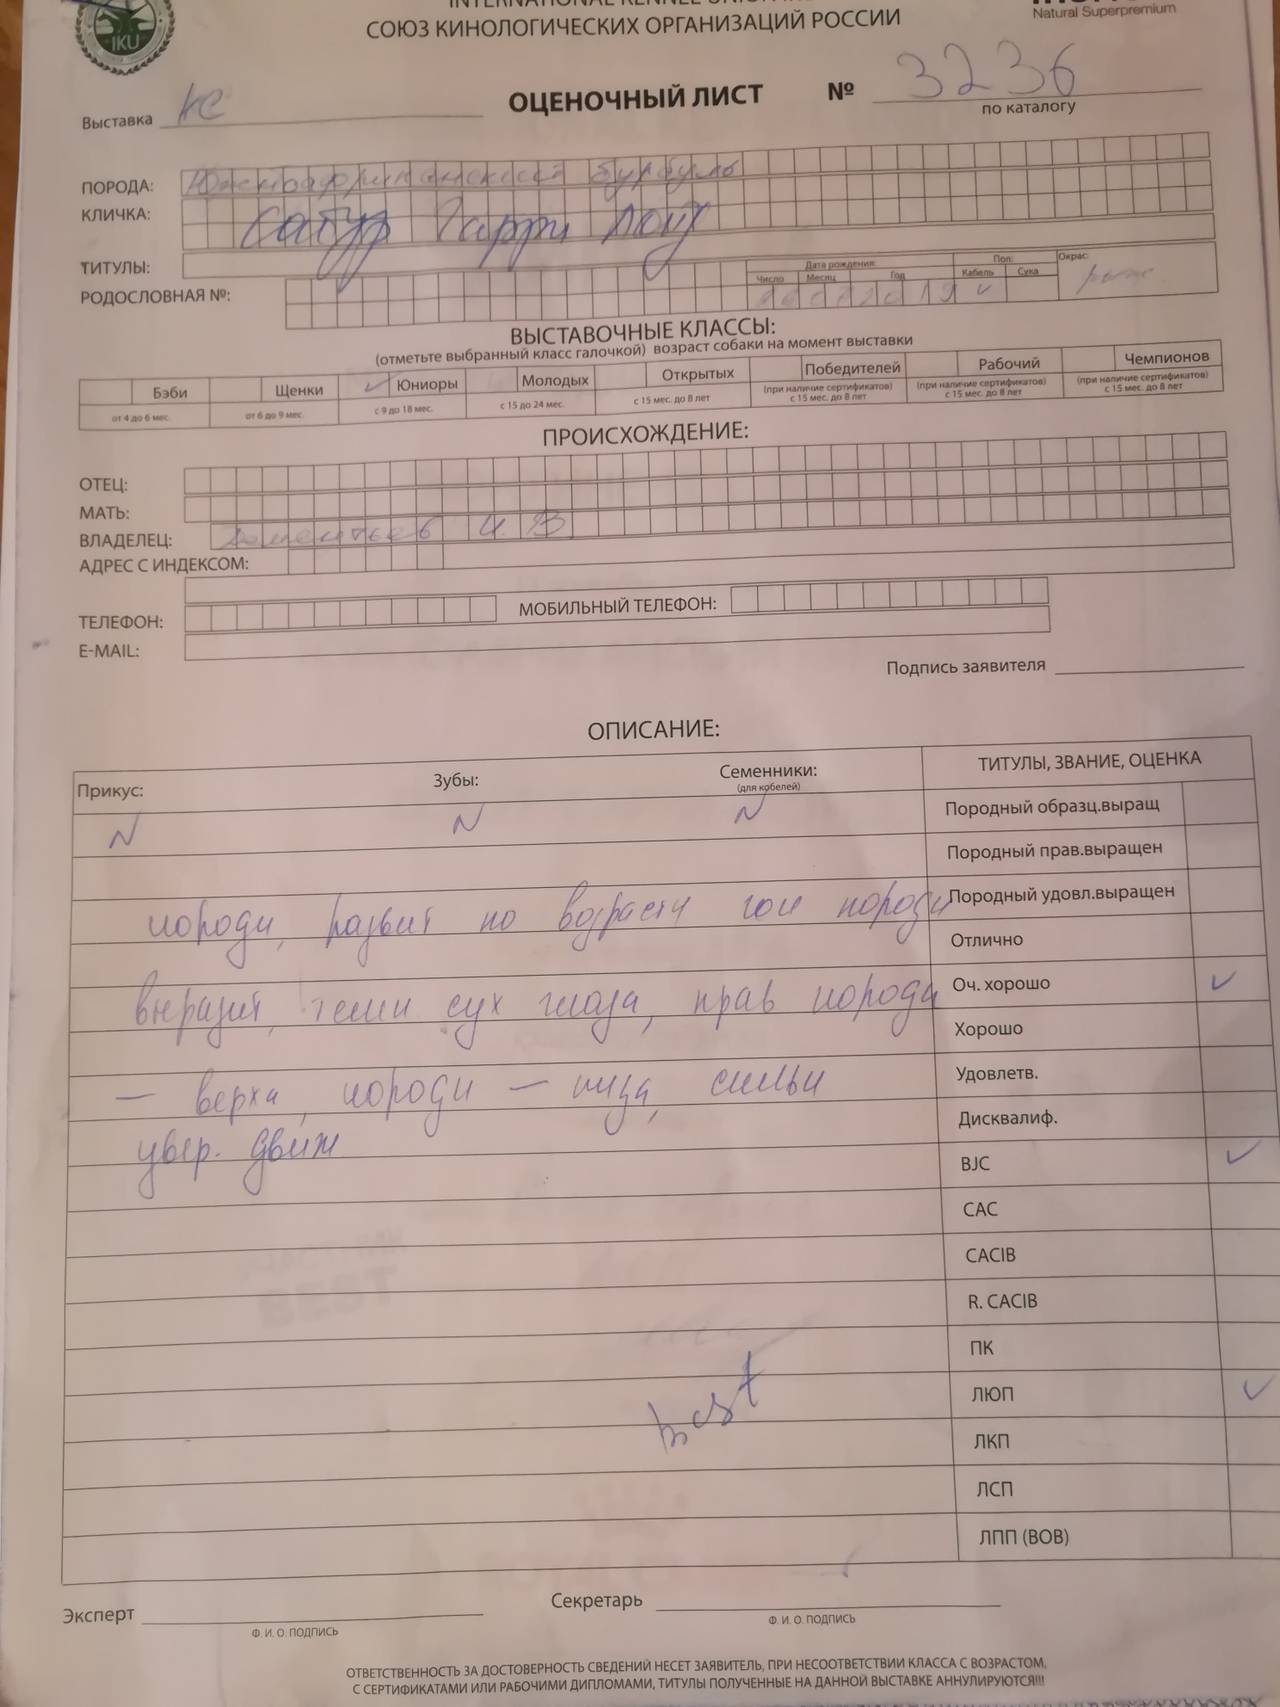 СОЮЗ КИНОЛОГИЧЕСКИХ ОРГАНИЗАЦИЙ РОССИИ
IKU
Natural Superpremium
Выставка КС
ОЦЕНОЧНЫЙ ЛИСТ
№ 3236
по каталогу
ПОРОДА: Южноафриканский бурбуль
КЛИЧКА: Сабур Гарри
ТИТУЛЫ:
РОДОСЛОВНАЯ №:
Дата рождения: Пол: Окрас:
Число Месяц Год Кабель Сука
2019 рыж
ВЫСТАВОЧНЫЕ КЛАССЫ:
(отметьте выбранный класс галочкой) возраст собаки на момент выставки
Бэби Щенки ✓ Юниоры Молодых Открытых Победителей Рабочий Чемпионов
от 4 до 6 мес. от 6 до 9 мес. с 9 до 18 мес. с 15 до 24 мес. с 15 мес. до 8 лет (при наличие сертификатов) с 15 мес. до 8 лет (при наличие сертификатов) с 15 мес. до 8 лет (при наличие сертификатов) с 15 мес. до 8 лет
ПРОИСХОЖДЕНИЕ:
ОТЕЦ:
МАТЬ:
ВЛАДЕЛЕЦ: И.В.
АДРЕС С ИНДЕКСОМ:
ТЕЛЕФОН: МОБИЛЬНЫЙ ТЕЛЕФОН:
E-MAIL:
Подпись заявителя
ОПИСАНИЕ:
Прикус: Зубы: Семенники:
(для кобелей)
N N N
породн, развит по возрасту гол породн
выразит, темн сух глаза, прав породн
– верха, породн – низа, сильн
увер. движ
best
ТИТУЛЫ, ЗВАНИЕ, ОЦЕНКА
Породный образц.выращ
Породный прав.выращен
Породный удовл.выращен
Отлично
Оч. хорошо ✓
Хорошо
Удовлетв.
Дисквалиф.
BJC ✓
САС
CACIB
R. CACIB
ПК
ЛЮП ✓
ЛКП
ЛСП
ЛПП (ВОВ)
Эксперт Секретарь
Ф. И. О. ПОДПИСЬ Ф. И. О. ПОДПИСЬ
ОТВЕТСТВЕННОСТЬ ЗА ДОСТОВЕРНОСТЬ СВЕДЕНИЙ НЕСЕТ ЗАЯВИТЕЛЬ, ПРИ НЕСООТВЕТСТВИИ КЛАССА С ВОЗРАСТОМ,
С СЕРТИФИКАТАМИ ИЛИ РАБОЧИМИ ДИПЛОМАМИ, ТИТУЛЫ ПОЛУЧЕННЫЕ НА ДАННОЙ ВЫСТАВКЕ АННУЛИРУЮТСЯ!!!